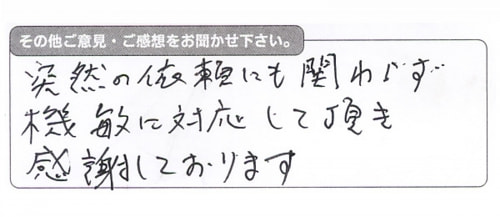 その他ご意見・ご感想をお聞かせ下さい。
突然の依頼にも関わらず
機敏に対応して頂き
感謝しております